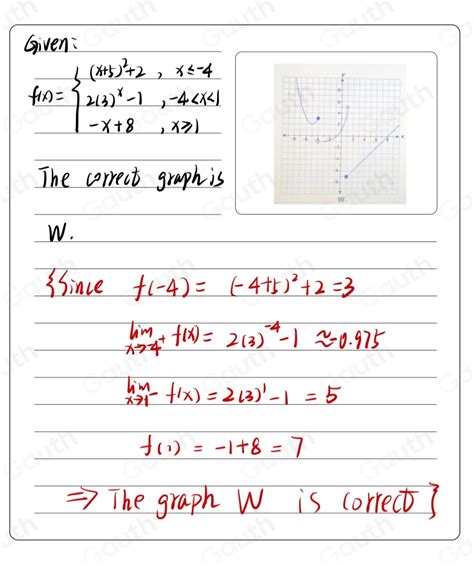 Given:
f(x) = { (x+5)²+2 , x ≤ -4
2(3)ˣ - 1 , -4<x<1
-x+8 , x ≥ 1
The correct graph is
W.
W.
{Since f(-4) = (-4+5)²+2 = 3
lim x→-4⁺ f(x) = 2(3)⁻⁴ - 1 ≈ -0.975
lim x→1⁻ f(x) = 2(3)¹ - 1 = 5
f(1) = -1+8 = 7
⇒ The graph W is correct}
Gauth